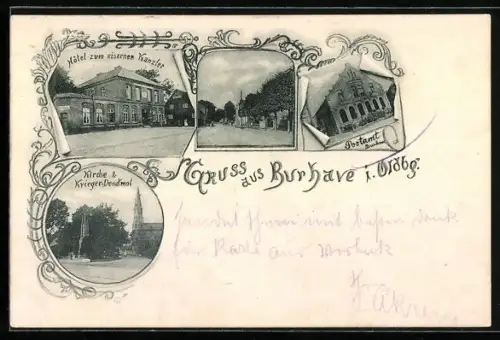 Hôtel zum eisernen Kanzler
Postamt
Gruss aus Burhave i. Oldbg.
Kirche &
Krieger-Denkmal
sendet Ihnen mit besten Dank
für Karte aus